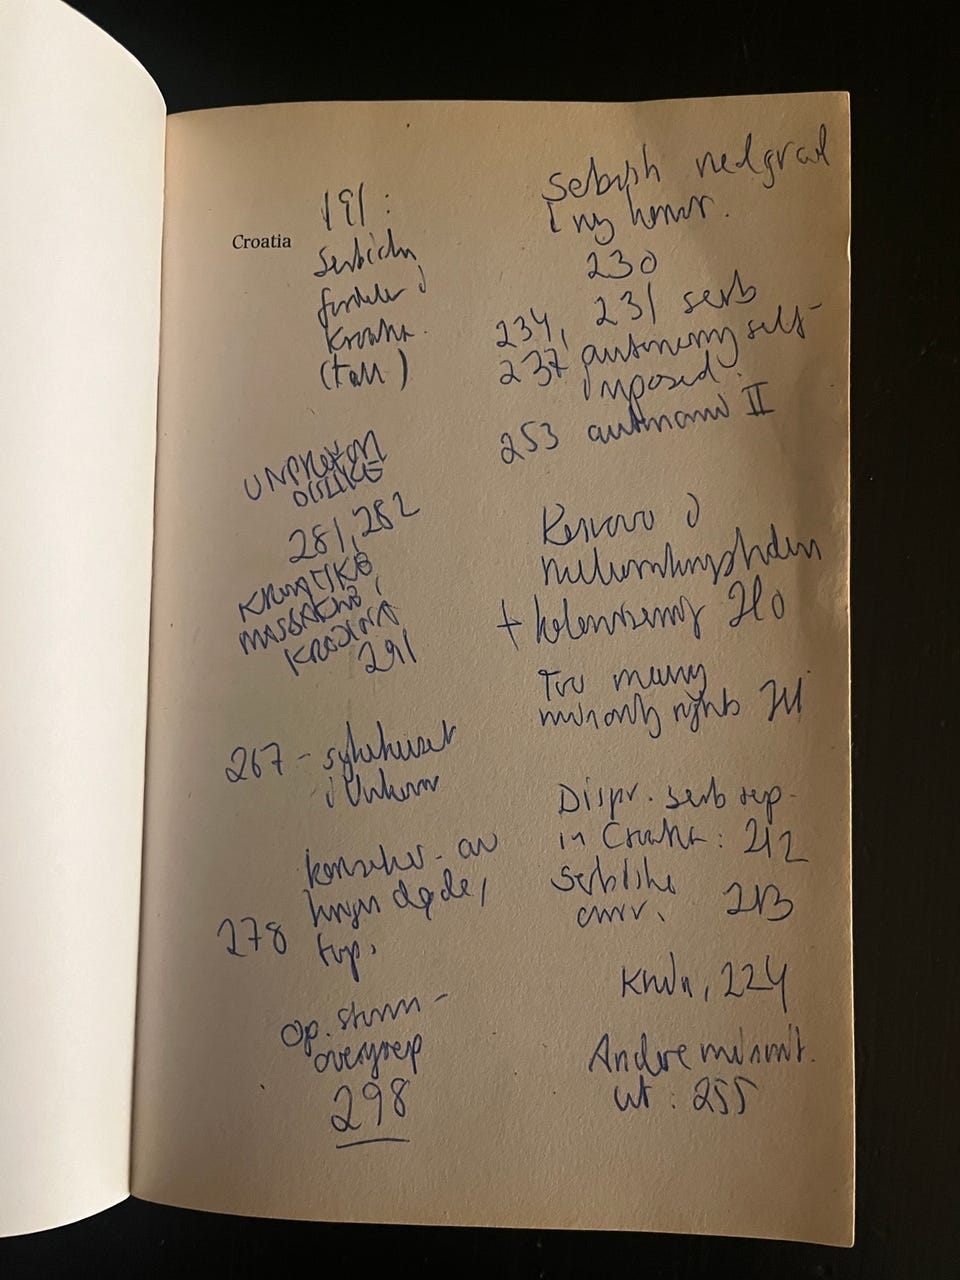 Croatia
191:
i
Kroatia.
(tall)
UNPROFOR
DISLIKE
281, 282
MASSAKRE i
KRAJINA
291
267 - sykehuset
i Vukovar
konsekv. av
278 krigen døde,
Op. storm -
overgrep
298
Serbish nedgrad
i ny konst.
230
234, 231 serb
237 autonomy self-
imposed.
253 autonomi II
i
+ kolonisering 210
Too many
minority rights 211
Dispr. serb rep.
in Croatia: 212
Serbiske
213
Knin, 224
Andre minorit.
ut: 255